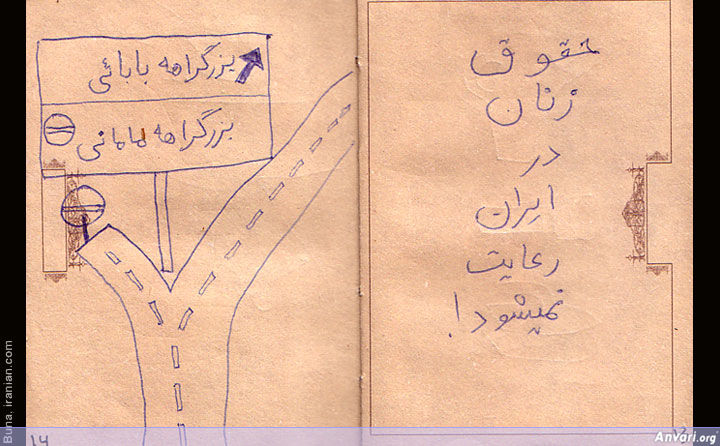 حقوق
زنان
در
ایران
رعایت
نمیشود!
بزرگراه بابائی
بزرگراه مامانی
14
Buna. iranian.com
Anvari.org